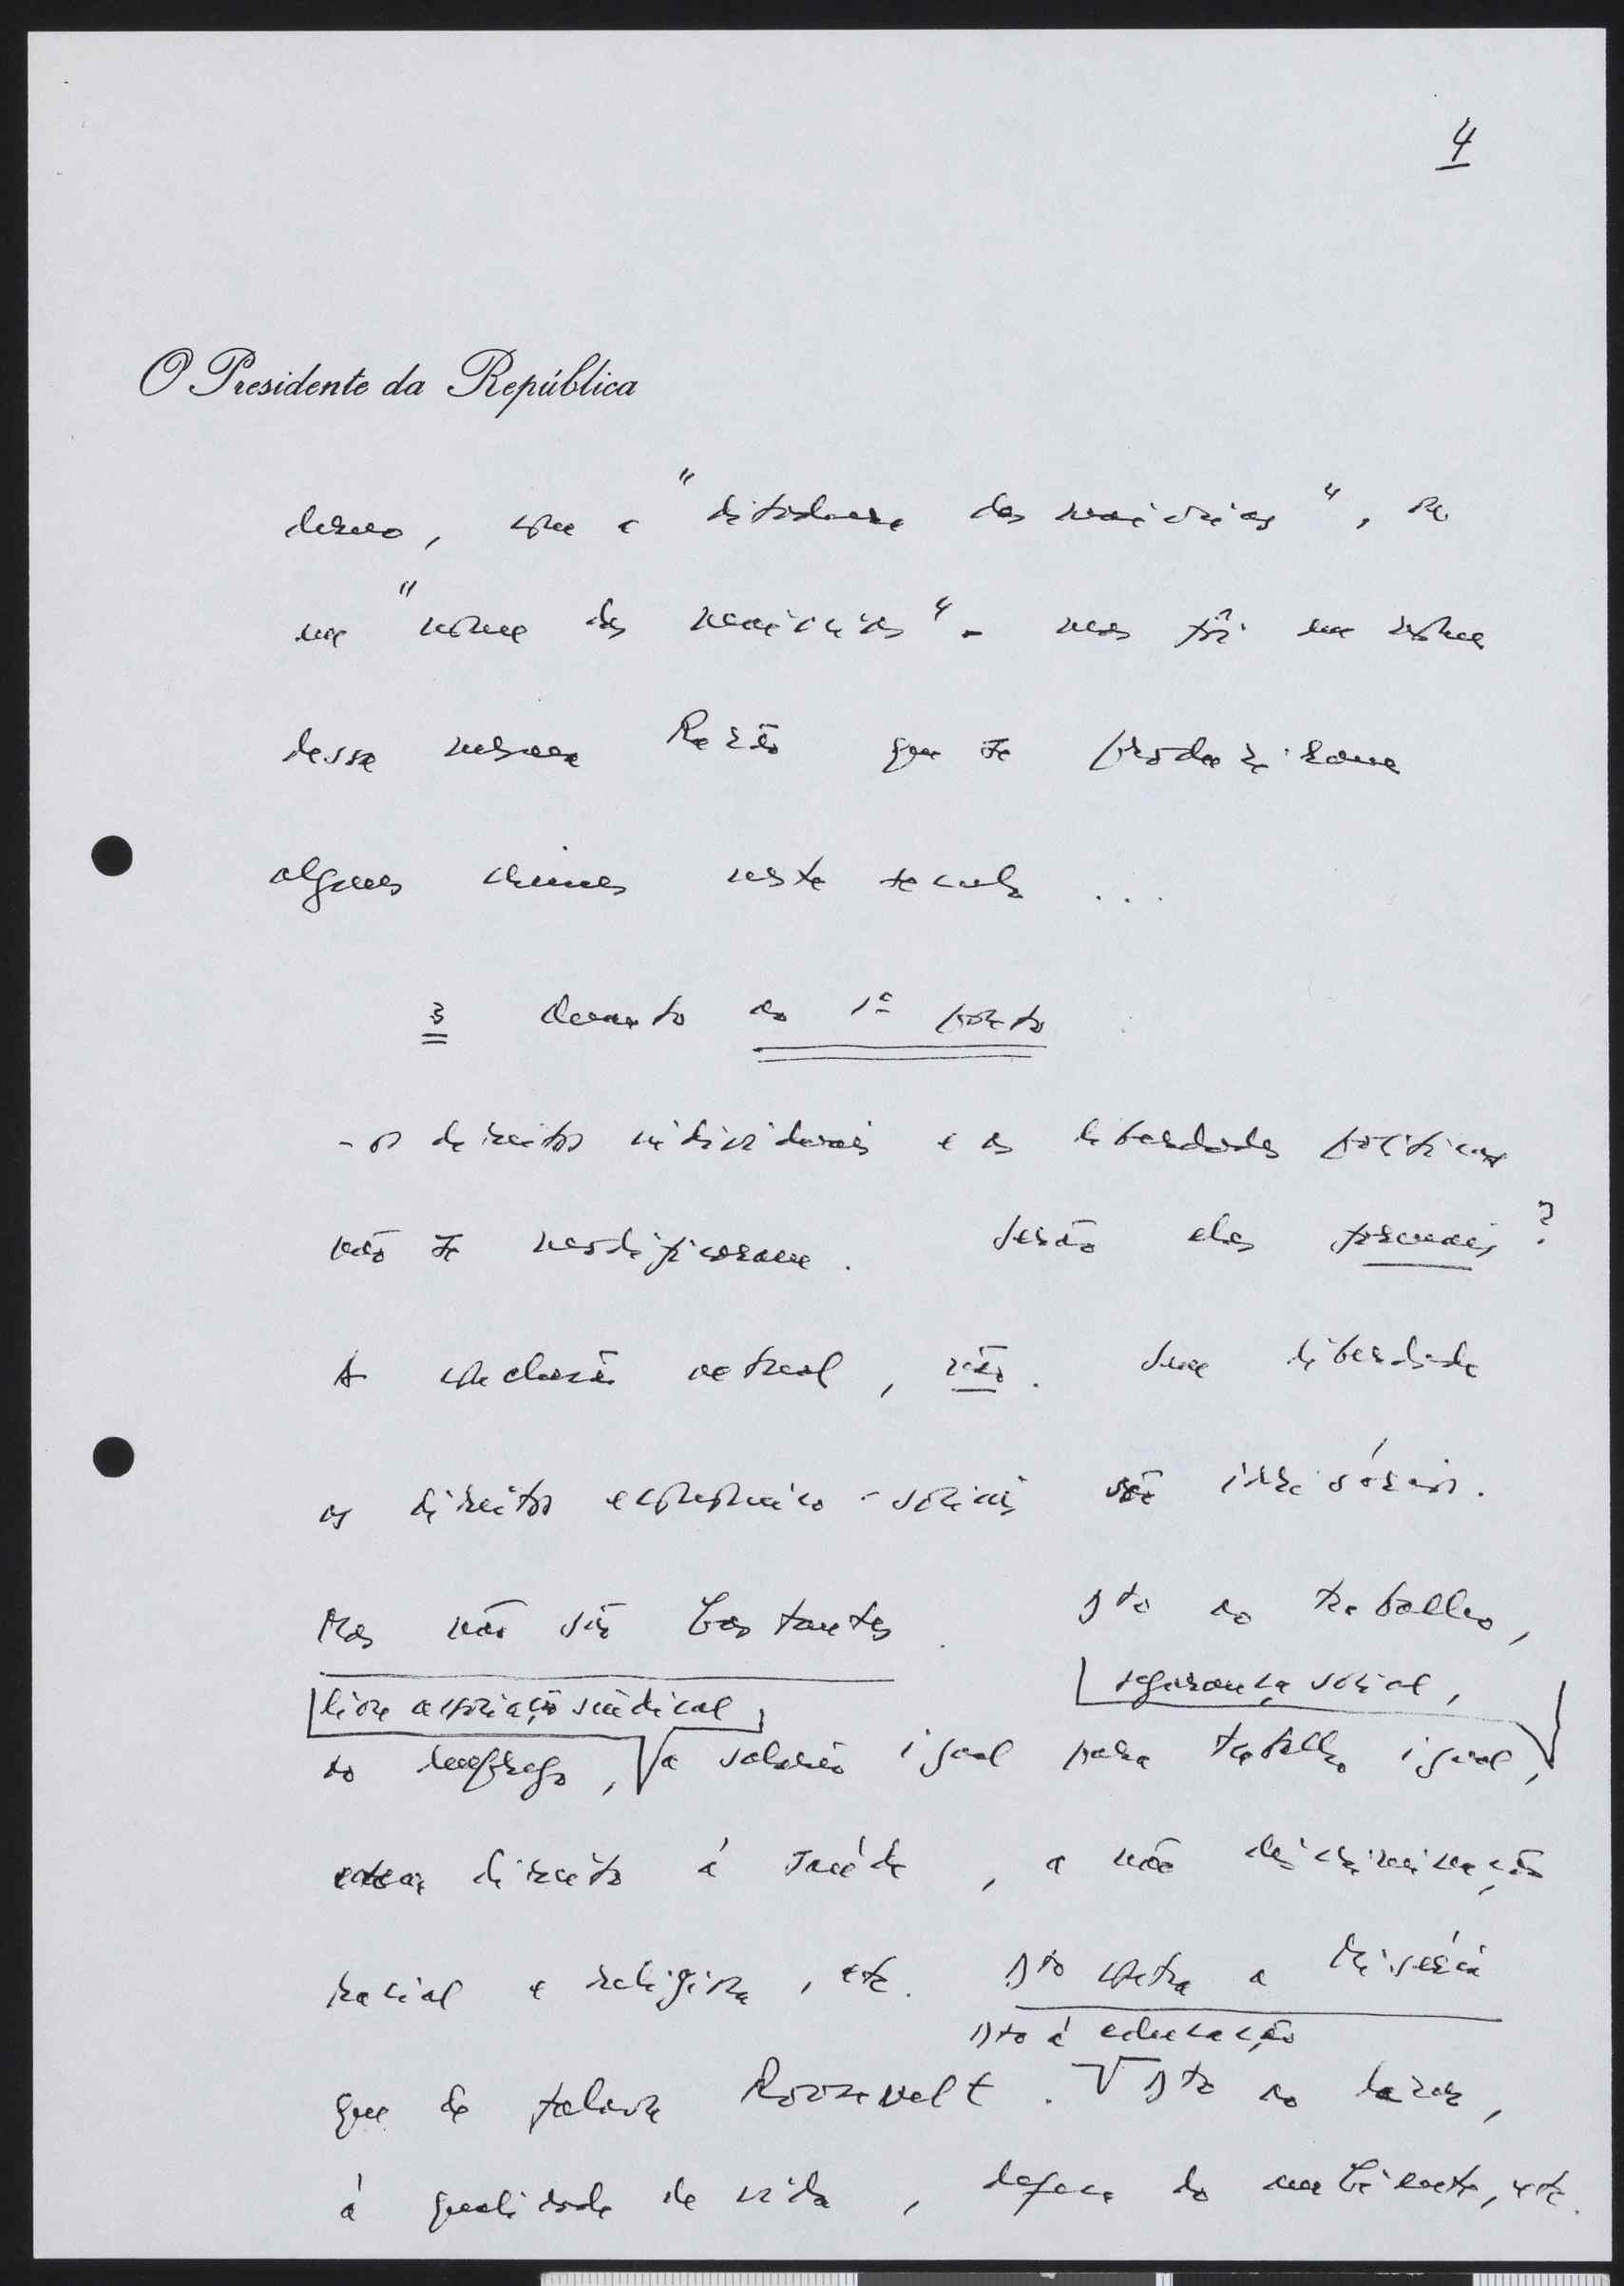 4
O Presidente da República
com a "ditadura das maiorias", ou
em "nome das maiorias" - mas foi em nome
dessa mesma Razão que se produziram
alguns crimes neste seculo ...
3 Quanto ao 1º ponto
- os direitos individuais e as liberdades políticas
não se modificaram. Serão elas formais?
A conclusão actual, não. Sem liberdade
os direitos económico-sociais são irrisórios.
Mas não são bastantes. Dto ao trabalho,
segurança social,
livre associação sindical
ao emprego, a salário igual para trabalho igual,
direito á saúde, a não discriminação
racial e religiosa, etc. Dto contra a Miséria
Dto á educação
que falava Roosevelt. Dto ao lazer,
á qualidade de vida, defesa do ambiente, etc.